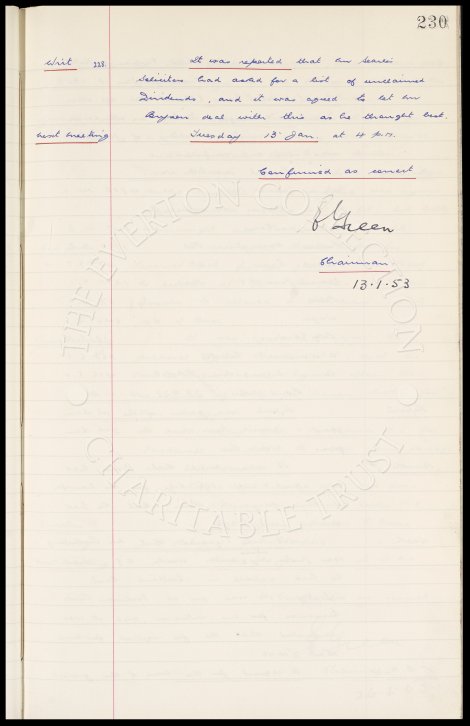 230
Writ 228. It was reported that Mr Searle's
Solicitors had asked for a list of unclaimed
Dividends, and it was agreed to let Mr
Bryson deal with this as he thought best.
next meeting Tuesday 13 Jan at 4 p.m.
Confirmed as correct
E Green
Chairman.
13.1.53
THE EVERTON COLLECTION
CHARITABLE TRUST